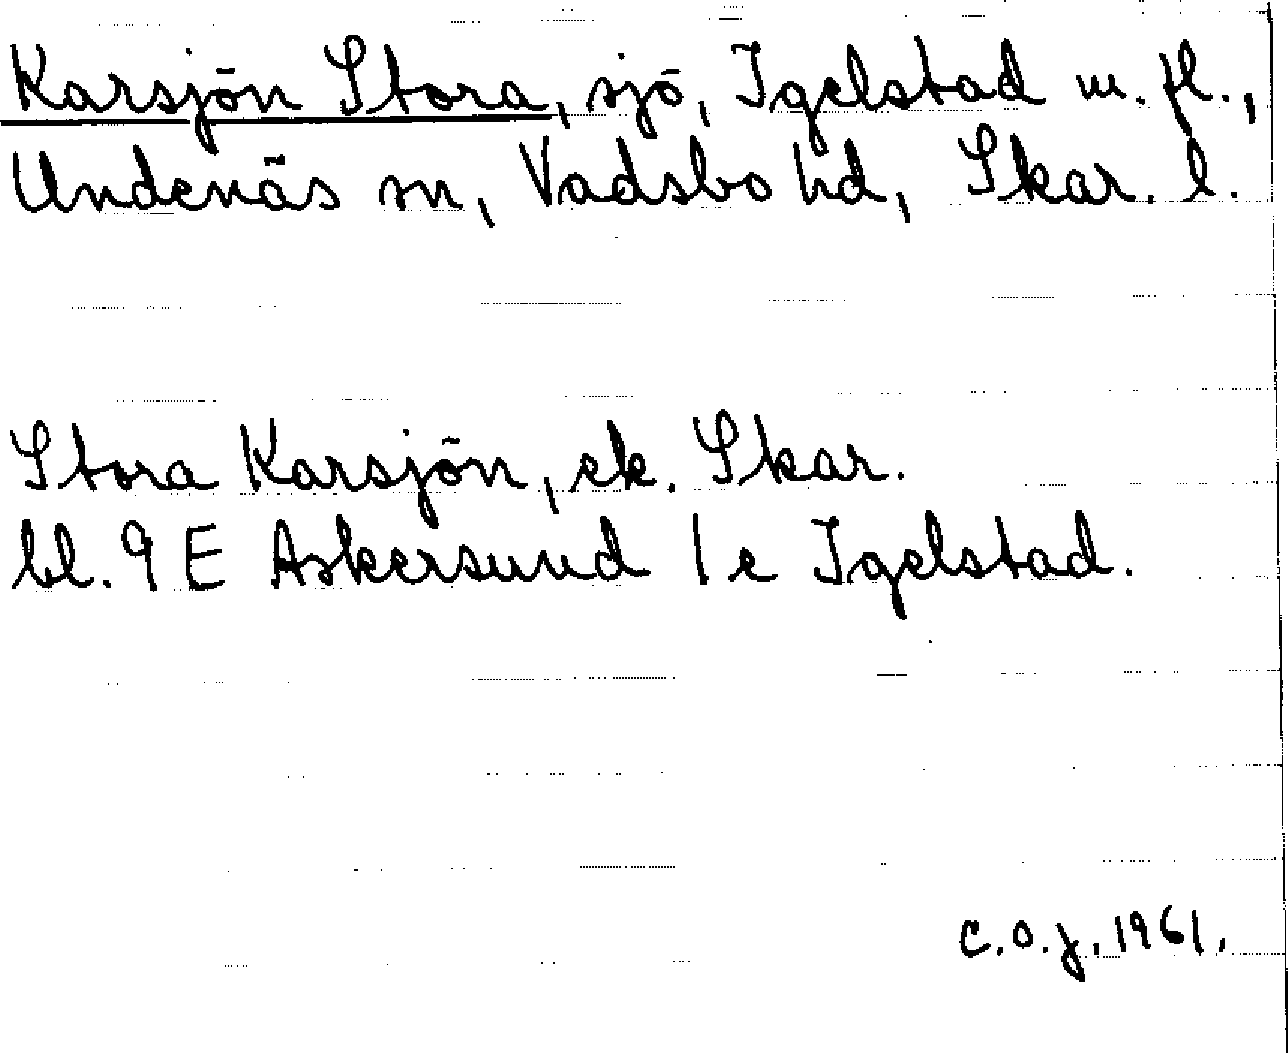 Karsjön Stora, sjö, Igelstad m. fl.,
Undenäs sn, Vadsbo hd, Skar. l.
Stora Karsjön, ek. Skar.
bl. 9 E Askersund 1 e Igelstad.
C.O.J. 1961.